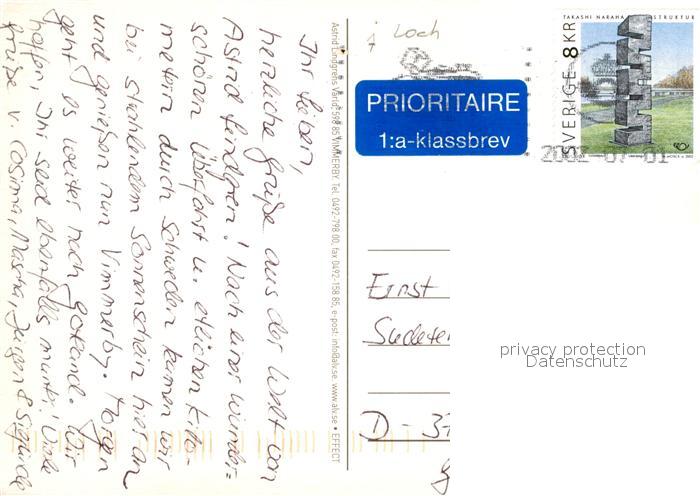 Ihr Lieben,
herzliche Grüße aus der Welt von
Astrid Lindgren! Nach einer wunder-
schönen Überfahrt u. etlichen Kilo-
metern durch Schweden kamen wir
bei strahlendem Sonnenschein hier an
und genießen nun Vimmerby. Morgen
geht es weiter nach Gotland. Wir
hoffen, Ihr seid ebenfalls munter! Viele
Grüße v. Cosima, Mascha, Jürgen & Sieglinde
Astrid Lindgrens Värld, 598 85 VIMMERBY. Tel. 0492-798 00, fax 0492-158 85, e-post: info@alv.se www.alv.se • EFFECT
j Loch
PRIORITAIRE
1:a-klassbrev
TAKASHI NARAHA STRUKTUR
SVERIGE 8 KR
2002-07-01
Ernst
Sudeten
D - 3
privacy protection
Datenschutz